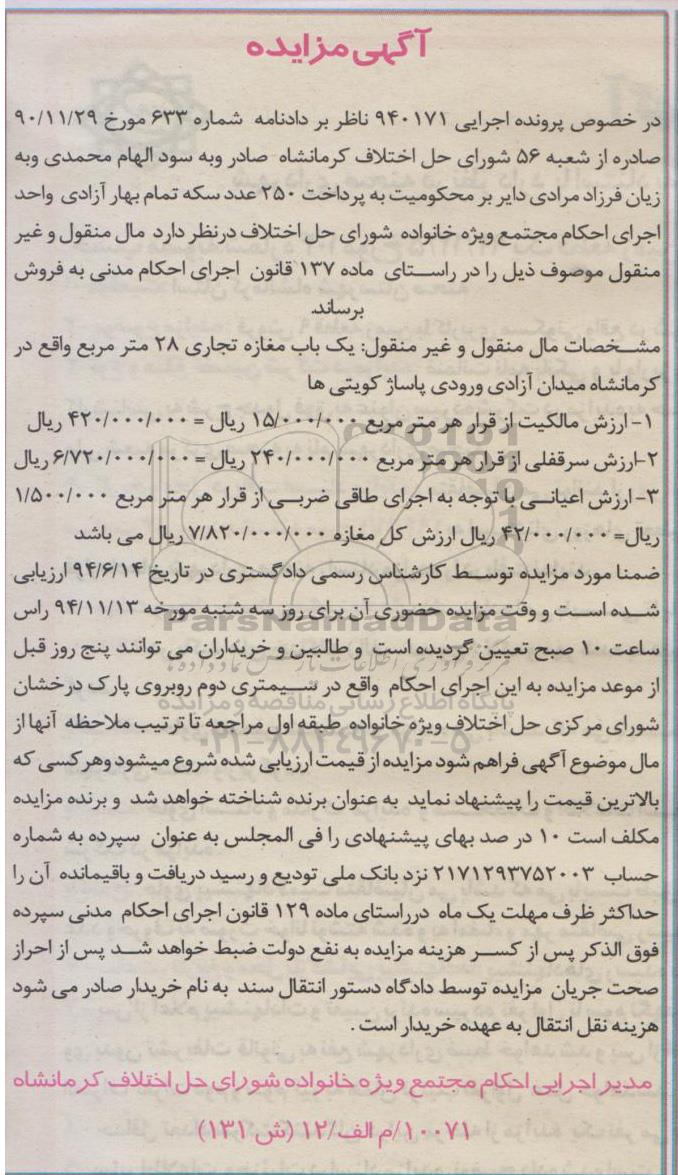 آگهی مزایده
در خصوص پرونده اجرایی ۹۴۰۱۷۱ ناظر بر دادنامه شماره ۶۳۳ مورخ ۹۰/۱۱/۲۹
صادره از شعبه ۵۶ شورای حل اختلاف کرمانشاه صادر وبه سود الهام محمدی وبه
زیان فرزاد مرادی دایر بر محکومیت به پرداخت ۲۵۰ عدد سکه تمام بهار آزادی واحد
اجرای احکام مجتمع ویژه خانواده شورای حل اختلاف درنظر دارد مال منقول و غیر
منقول موصوف ذیل را در راستای ماده ۱۳۷ قانون اجرای احکام مدنی به فروش
برساند.
مشخصات مال منقول و غیر منقول: یک باب مغازه تجاری ۲۸ متر مربع واقع در
کرمانشاه میدان آزادی ورودی پاساژ کویتی ها
۱- ارزش مالکیت از قرار هر متر مربع ۱۵/۰۰۰/۰۰۰ ریال = ۴۲۰/۰۰۰/۰۰۰ ریال
۲-ارزش سرقفلی از قرار هر متر مربع ۲۴۰/۰۰۰/۰۰۰ ریال = ۶/۷۲۰/۰۰۰/۰۰۰ ریال
۳- ارزش اعیانی با توجه به اجرای طاقی ضربی از قرار هر متر مربع ۱/۵۰۰/۰۰۰
ریال= ۴۲/۰۰۰/۰۰۰ ریال ارزش کل مغازه ۷/۸۲۰/۰۰۰/۰۰۰ ریال می باشد
ضمنا مورد مزایده توسط کارشناس رسمی دادگستری در تاریخ ۹۴/۶/۱۴ ارزیابی
شده است و وقت مزایده حضوری آن برای روز سه شنبه مورخه ۹۴/۱۱/۱۳ راس
ParsNamadData
ساعت ۱۰ صبح تعیین گردیده است و طالبین و خریداران می توانند پنج روز قبل
از موعد مزایده به این اجرای احکام واقع در سیمتری دوم روبروی پارک درخشان
پایگاه اطلاع رسانی مناقصه و مزایده
شورای مرکزی حل اختلاف ویژه خانواده طبقه اول مراجعه تا ترتیب ملاحظه آنها از
۰۲۱-۸۸۳۴۹۶۷۰-۵
مال موضوع آگهی فراهم شود مزایده از قیمت ارزیابی شده شروع میشود وهر کسی که
بالاترین قیمت را پیشنهاد نماید به عنوان برنده شناخته خواهد شد و برنده مزایده
مکلف است ۱۰ در صد بهای پیشنهادی را فی المجلس به عنوان سپرده به شماره
حساب ۲۱۷۱۲۹۳۷۵۲۰۰۳ نزد بانک ملی تودیع و رسید دریافت و باقیمانده آن را
حداکثر ظرف مهلت یک ماه درراستای ماده ۱۲۹ قانون اجرای احکام مدنی سپرده
فوق الذکر پس از کسر هزینه مزایده به نفع دولت ضبط خواهد شد پس از احراز
صحت جریان مزایده توسط دادگاه دستور انتقال سند به نام خریدار صادر می شود
هزینه نقل انتقال به عهده خریدار است .
مدیر اجرایی احکام مجتمع ویژه خانواده شورای حل اختلاف کرمانشاه
۱۰۰۷۱/م الف/۱۲ (ش ۱۳۱)